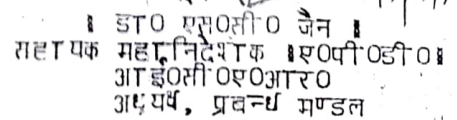 । डा० एस०सी० जैन ।
सहायक महानिदेशक ।ए०पी०डी०।
आई०सी०ए०आर०
अध्यक्ष, प्रबन्ध मण्डल